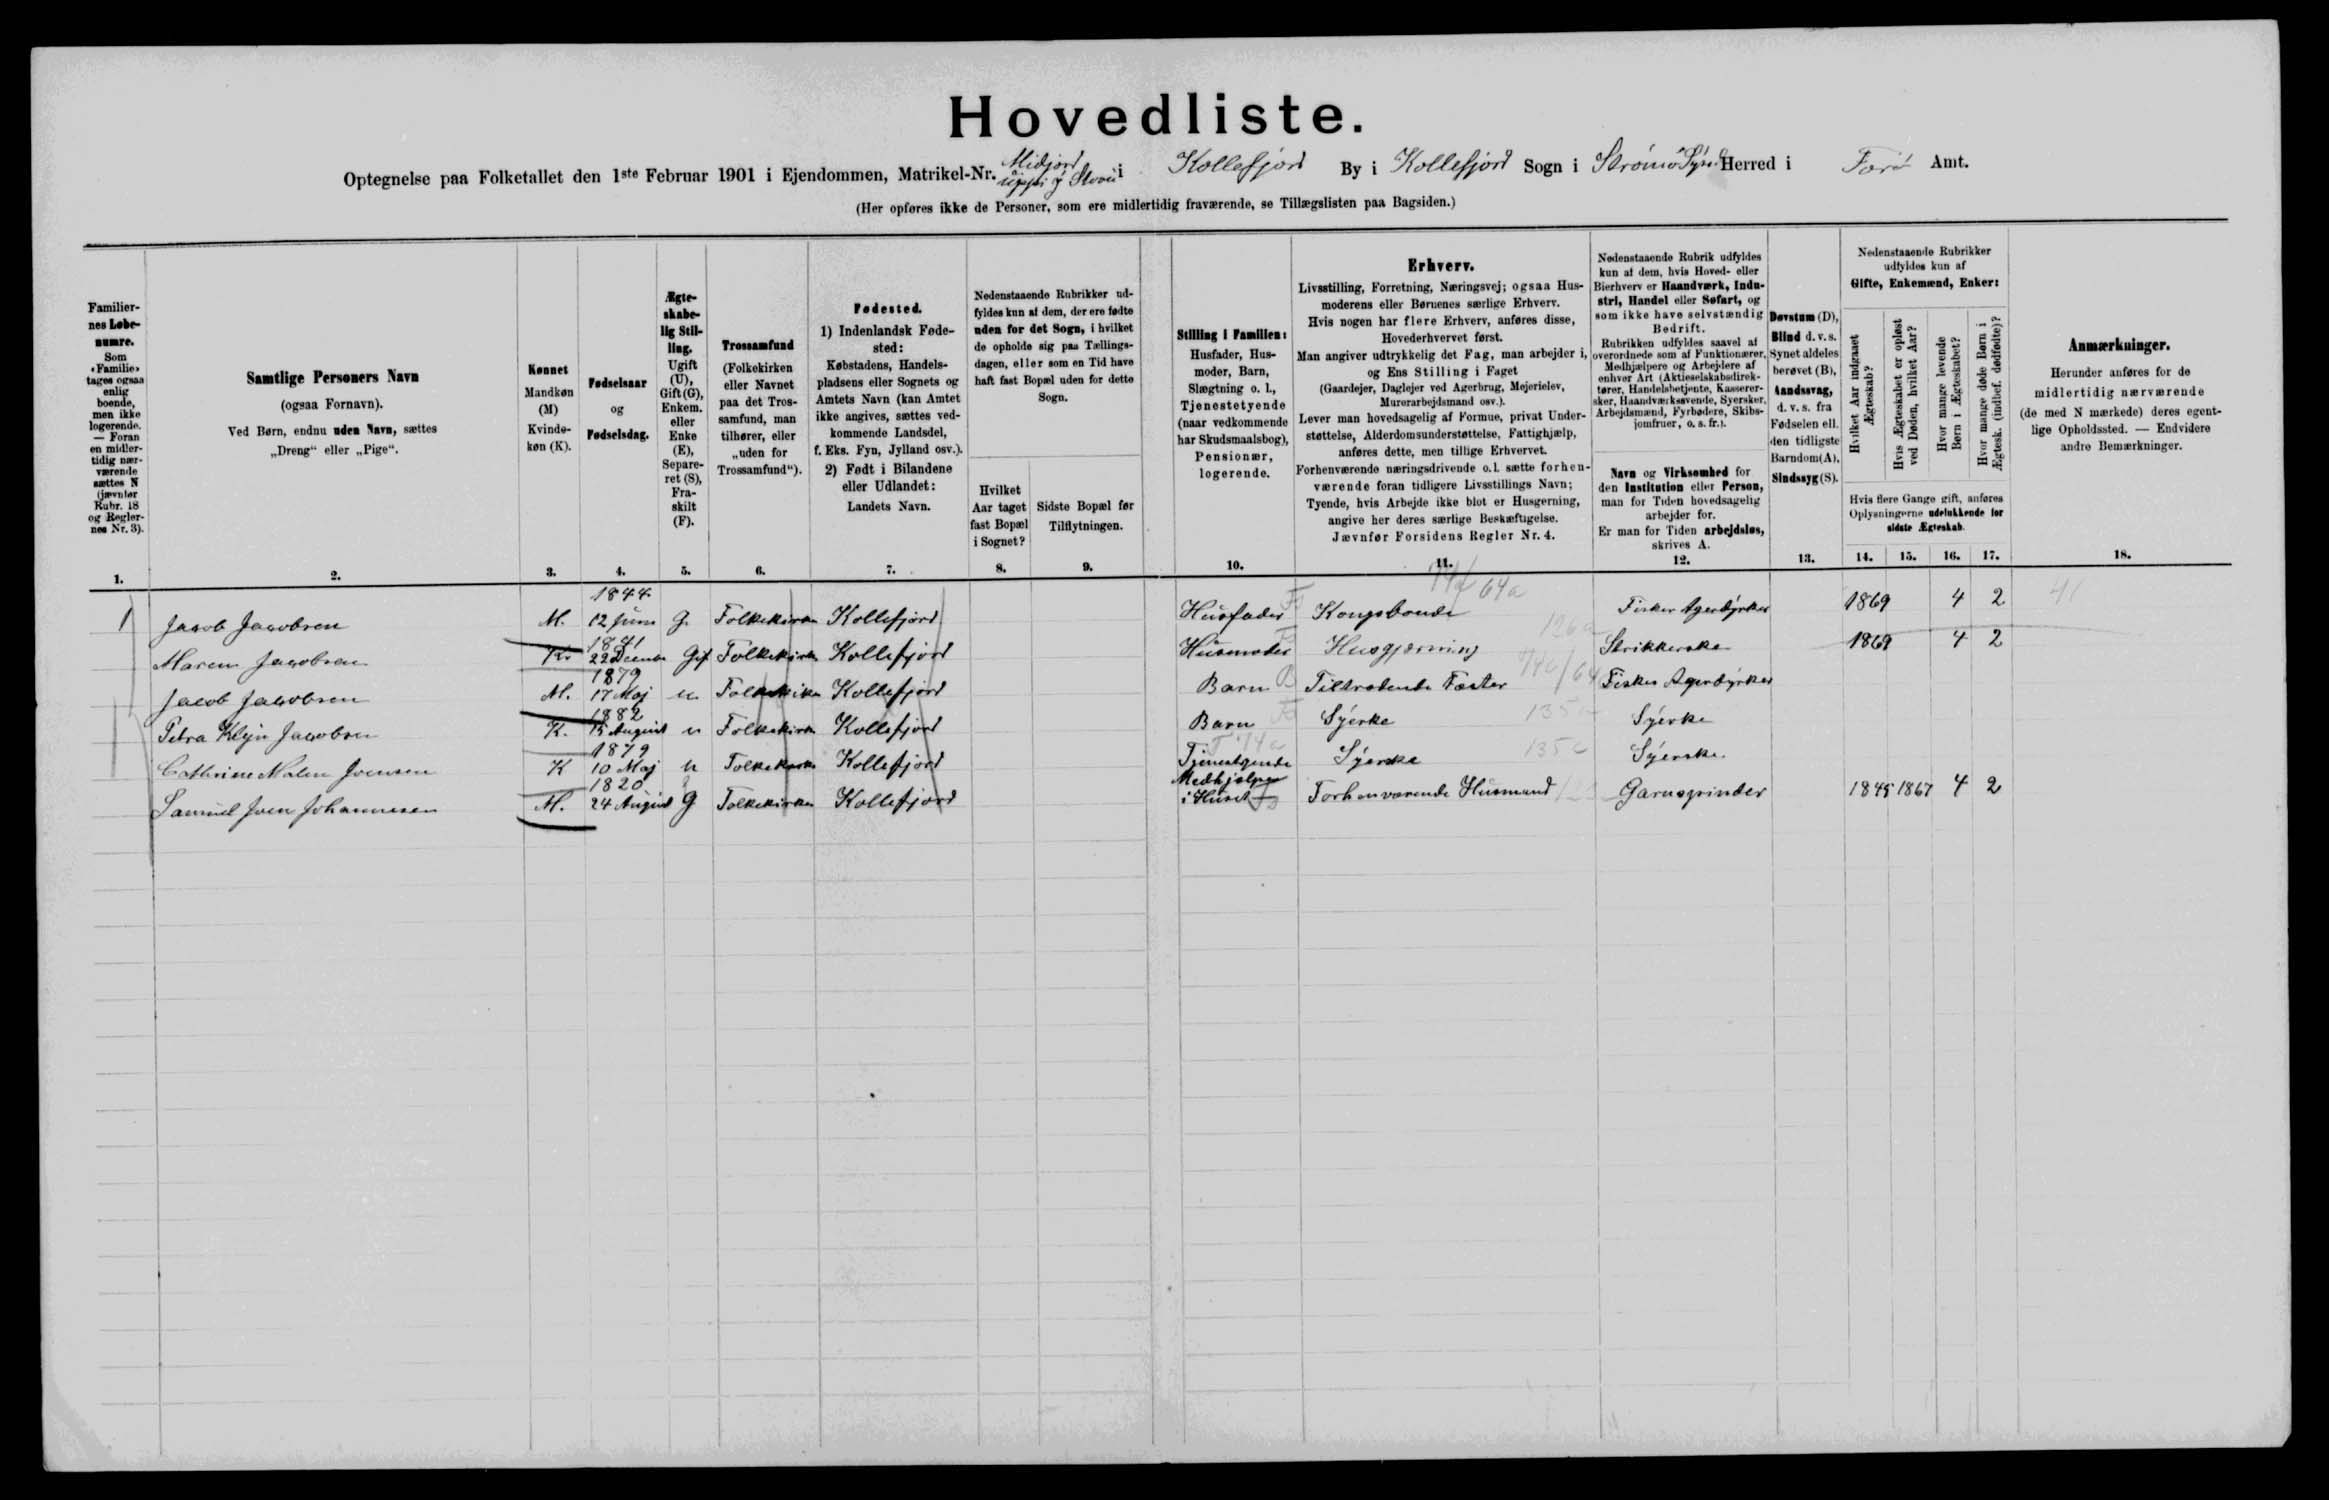 Hovedliste.
Optegnelse paa Folketallet den 1ste Februar 1901 i Ejendommen, Matrikel-Nr. i Kollefjord By i Kollefjord Sogn i Strömö Herred i Færö Amt.
(Her opføres ikke de Personer, som ere midlertidig fraværende, se Tillægslisten paa Bagsiden.)
Familier-
nes Løbe-
numre.
Som
«Familie»
tages ogsaa
enlig
boende,
men ikke
logerende.
— Foran
en midler-
tidig nær-
værende
sættes N
(jævnfør
Rubr. 18
og Regler-
nes Nr. 3).
1.
Samtlige Personers Navn
(ogsaa Fornavn).
Ved Børn, endnu uden Navn, sættes
„Dreng“ eller „Pige“.
2.
Kønnet
Mandkøn
(M)
Kvinde-
køn (K).
3.
Fødselsaar
og
Fødselsdag.
4.
Ægte-
skabe-
lig Stil-
ling.
Ugift
(U),
Gift (G),
Enkem.
eller
Enke
(E),
Separe-
ret (S),
Fra-
skilt
(F).
5.
Trossamfund
(Folkekirken
eller Navnet
paa det Tros-
samfund, man
tilhører, eller
„uden for
Trossamfund“).
6.
Fødested.
1) Indenlandsk Føde-
sted:
Købstadens, Handels-
pladsens eller Sognets og
Amtets Navn (kan Amtet
ikke angives, sættes ved-
kommende Landsdel,
f. Eks. Fyn, Jylland osv.).
2) Født i Bilandene
eller Udlandet:
Landets Navn.
7.
Nedenstaaende Rubrikker ud-
fyldes kun af dem, der ere fødte
uden for det Sogn, i hvilket
de opholde sig paa Tællings-
dagen, eller som en Tid have
haft fast Bopæl uden for dette
Sogn.
Hvilket
Aar taget
fast Bopæl
i Sognet?
8.
Sidste Bopæl før
Tilflytningen.
9.
Stilling i Familien:
Husfader, Hus-
moder, Barn,
Slægtning o. l.,
Tjenestetyende
(naar vedkommende
har Skudsmaalsbog),
Pensionær,
logerende.
10.
Erhverv.
Livsstilling, Forretning, Næringsvej; ogsaa Hus-
moderens eller Børnenes særlige Erhverv.
Hvis nogen har flere Erhverv, anføres disse,
Hovederhvervet først.
Man angiver udtrykkelig det Fag, man arbejder i,
og Ens Stilling i Faget
(Gaardejer, Daglejer ved Agerbrug, Mejerielev,
Murerarbejdsmand osv.).
Lever man hovedsagelig af Formue, privat Under-
støttelse, Alderdomsunderstøttelse, Fattighjælp,
anføres dette, men tillige Erhvervet.
Forhenværende næringsdrivende o.l. sætte forhen-
værende foran tidligere Livsstillings Navn;
Tyende, hvis Arbejde ikke blot er Husgerning,
angive her deres særlige Beskæftigelse.
Jævnfør Forsidens Regler Nr. 4.
11.
Nedenstaaende Rubrik udfyldes
kun af dem, hvis Hoved- eller
Bierhverv er Haandværk, Indu-
stri, Handel eller Søfart, og
som ikke have selvstændig
Bedrift.
Rubrikken udfyldes saavel af
overordnede som af Funktionærer,
Medhjælpere og Arbejdere af
enhver Art (Aktieselskabsdirek-
tører, Handelsbetjente, Kasserer-
sker, Haandværkssvende, Syersker,
Arbejdsmænd, Fyrbødere, Skibs-
jomfruer, o. s. fr.).
Navn og Virksomhed for
den Institution eller Person,
man for Tiden hovedsagelig
arbejder for.
Er man for Tiden arbejdsløs,
skrives A.
12.
Døvstum (D),
Blind d. v. s.
Synet aldeles
berøvet (B),
Aandssvag,
d. v. s. fra
Fødselen ell.
den tidligste
Barndom (A),
Sindssyg (S).
13.
Nedenstaaende Rubrikker
udfyldes kun af
Gifte, Enkemænd, Enker:
Hvilket Aar indgaaet
Ægteskab?
Hvis Ægteskabet er opløst
ved Døden, hvilket Aar?
Hvor mange levende
Børn i Ægteskabet?
Hvor mange døde Børn i
Ægtesk. (indbef. dødfødte)?
Hvis flere Gange gift, anføres
Oplysningerne udelukkende for
sidste Ægteskab.
14. 15. 16. 17.
Anmærkninger.
Herunder anføres for de
midlertidig nærværende
(de med N mærkede) deres egent-
lige Opholdssted. — Endvidere
andre Bemærkninger.
18.
1 Jacob Jacobsen M. 1844 12 Juni G. Folkekirken Kollefjord Husfader Kongsbonde 64a Fisker Agerdyrker 1869 4 2 41
Maren Jacobsen K. 1841 22 December Gif Folkekirken Kollefjord Husmoder Husgjerning 126a Strikkerske 1869 4 2
Jacob Jacobsen M. 1879 17 Maj u Folkekirken Kollefjord Barn Tiltrædende Fæster Fisker Agerdyrker
Petra Jacobsen K. 1882 15 August u Folkekirken Kollefjord Barn Syerke Syerke
Cathrine Malene Joensen K 1879 10 Maj u Folkekirken Kollefjord Tjenestyende Syerske Syerske
Samuel Joen Johannesen M. 1820 24 August G Folkekirken Kollefjord Medhjælper i Huset Forhenværende Husmand Garnspinder 1845 1867 4 2